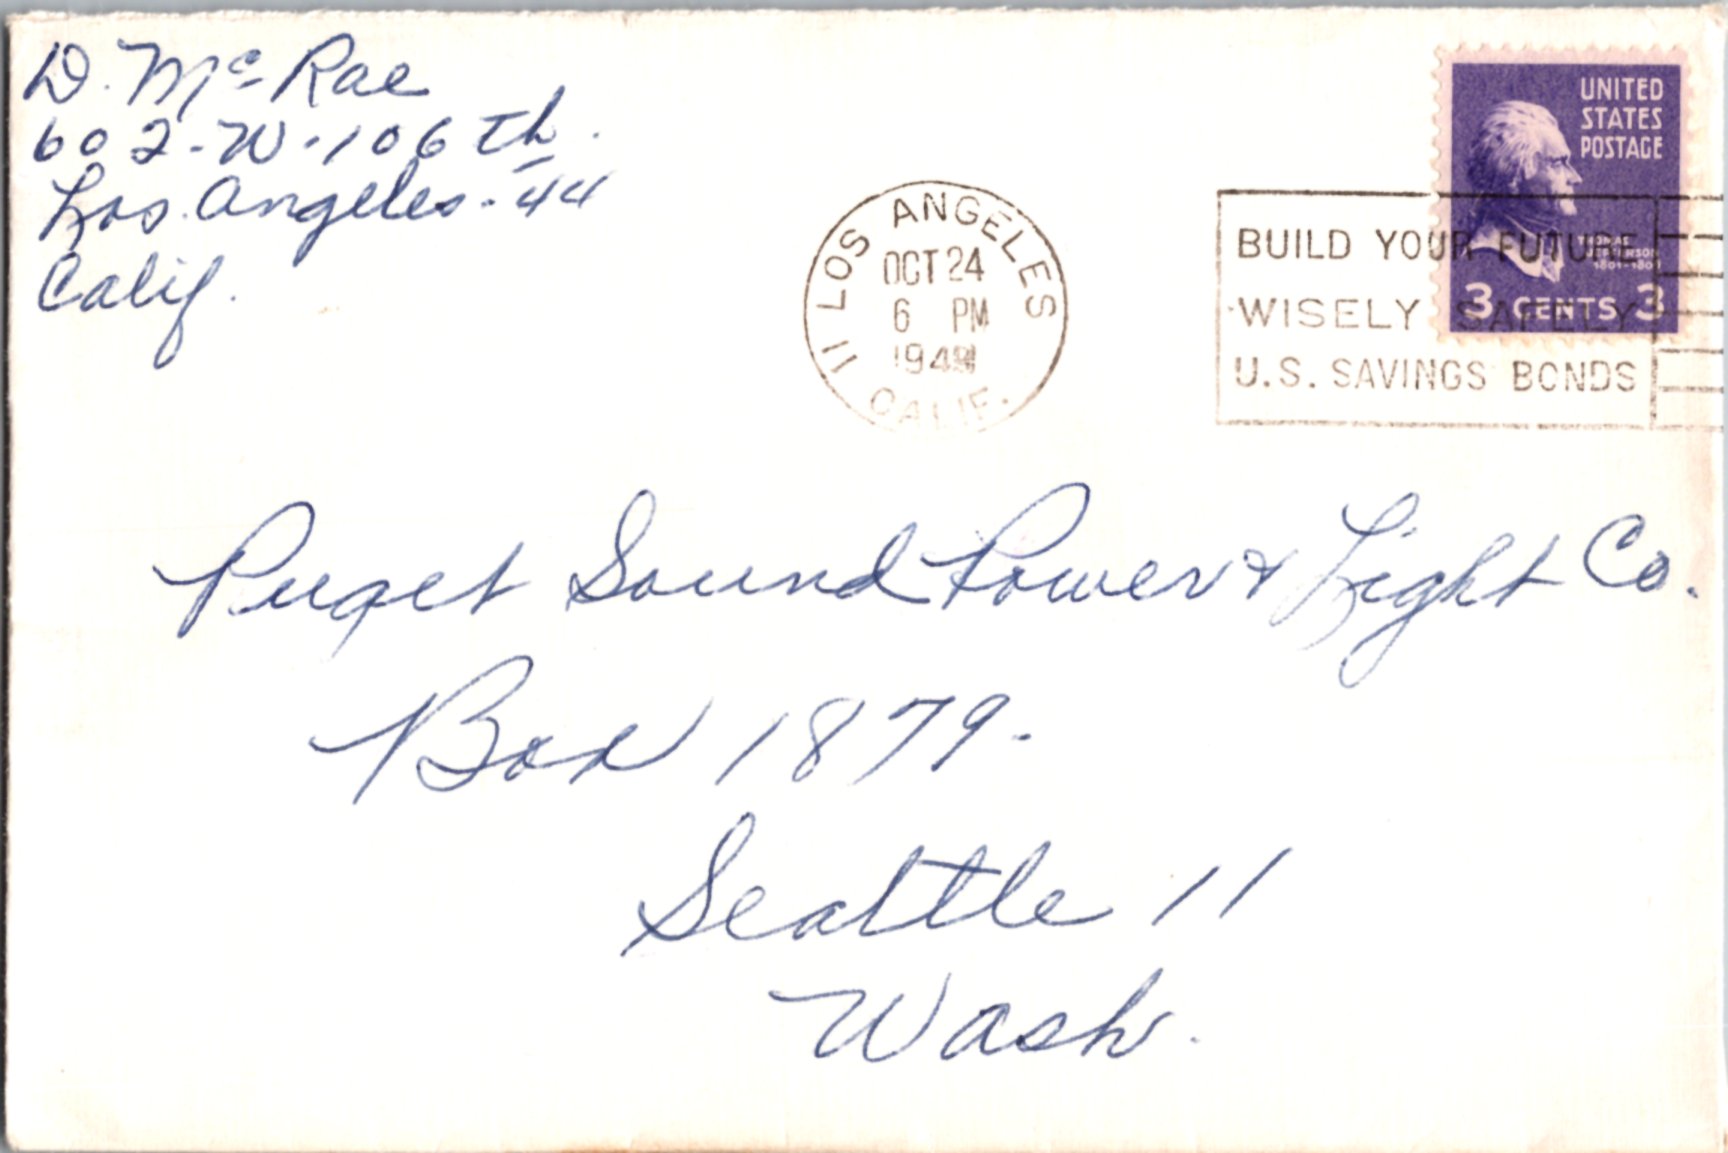 D. Mc Rae
602-W-106th.
Los Angeles-44
Calif.
UNITED
STATES
POSTAGE
THOMAS
JEFFERSON
1801-1809
3 CENTS 3
LOS ANGELES
OCT 24
6 PM
11 CALIF.
BUILD YOUR FUTURE
WISELY SAFELY
U.S. SAVINGS BONDS
Puget Sound Power & Light Co.
Box 1879-
Seattle 11
Wash.